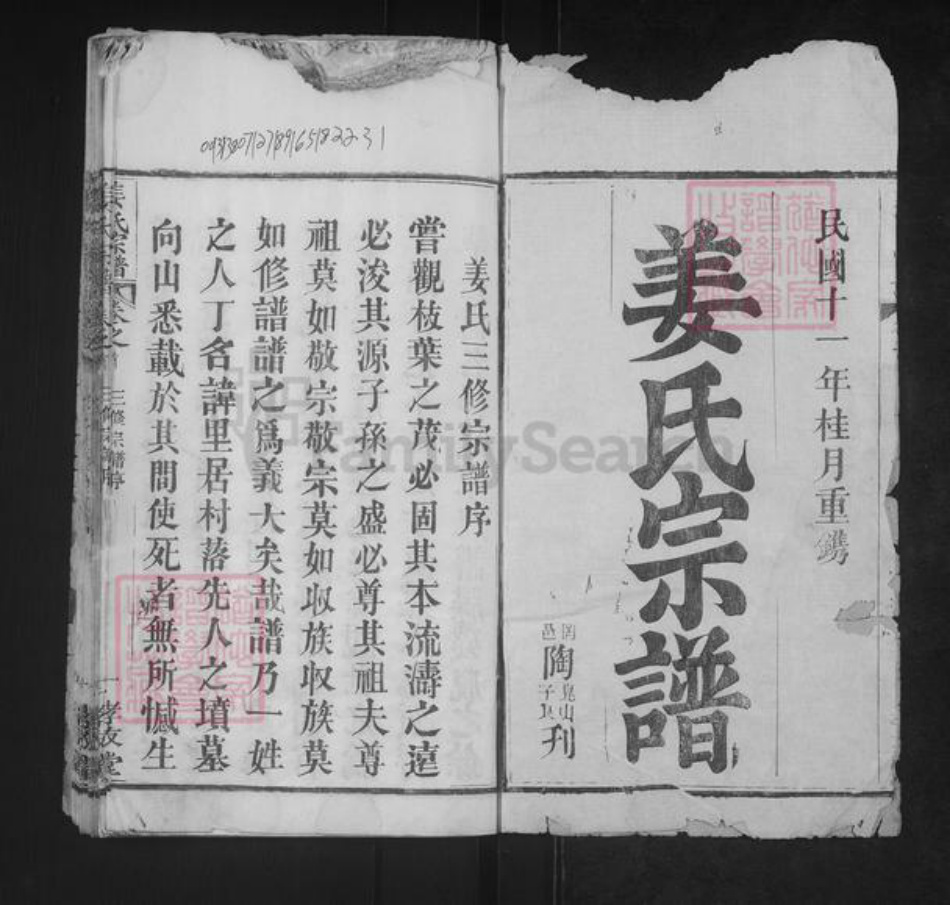 民國十一年桂月重鐫
姜氏宗譜
陶
刊
姜氏三修宗譜序
嘗觀枝葉之茂必固其本流濤之遠
必浚其源子孫之盛必尊其祖夫尊
祖莫如敬宗敬宗莫如収族収族莫
如修譜譜之爲義大矣哉譜乃一姓
之人丁名諱里居村落先人之墳墓
向山悉載於其間使死者無所憾生
姜氏宗譜
卷之首
三修宗譜序
一
孝友堂
FamilySearch